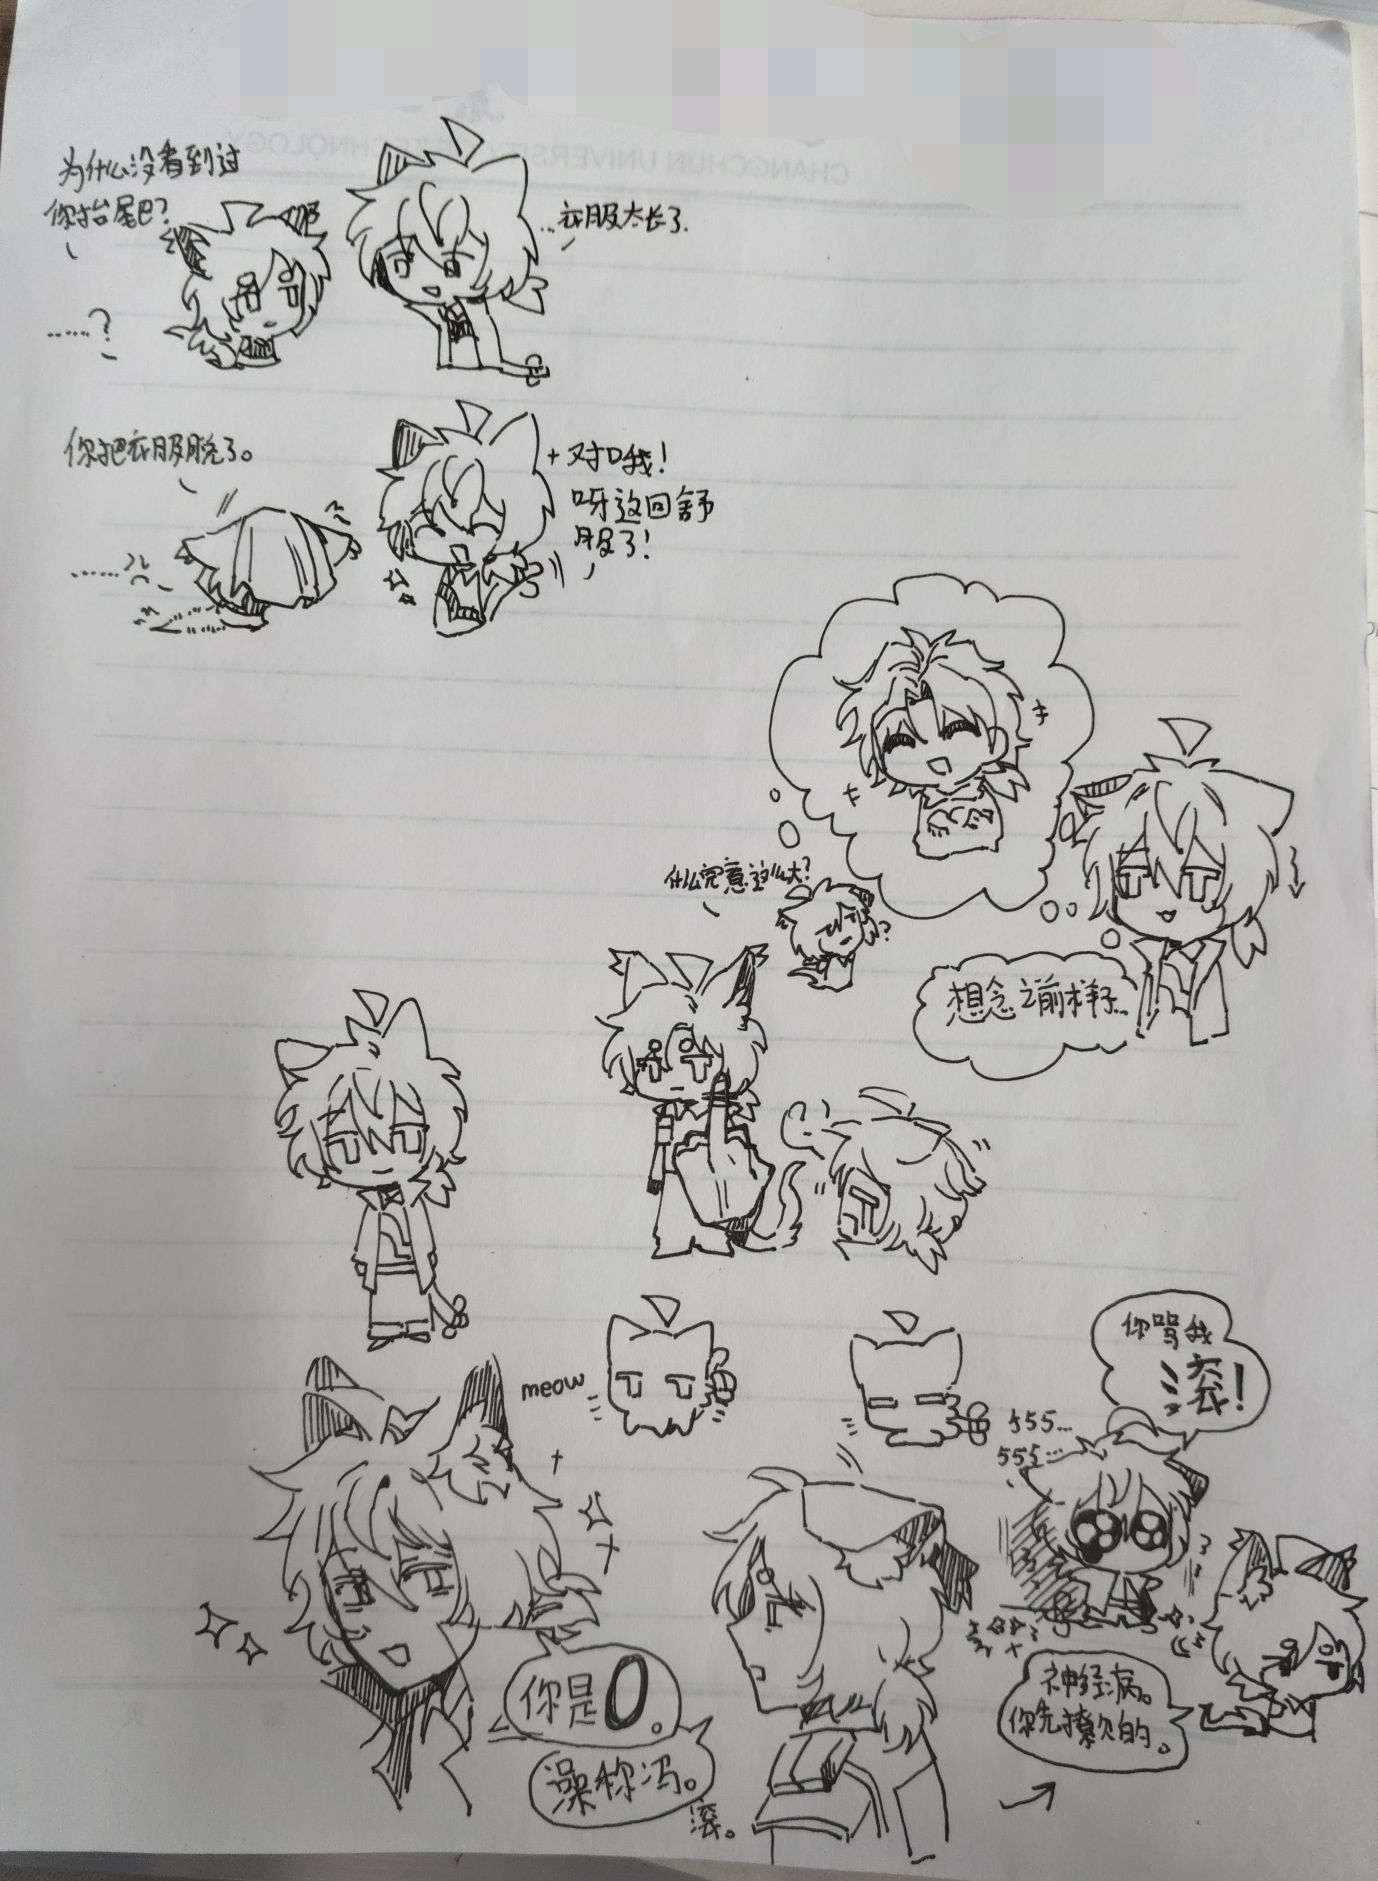 CHANGCHUN UNIVERSITY OF TECHNOLOGY
为什么没看到过
你抬尾巴?
……?
…衣服太长了.
你把衣服脱了。
……
+对哦!
呀这回舒
服了!
什么玩意这么大?
?
想念之前样子…
meow
你骂我
滚!
555…
555…
你是0。
滚。
神经病。
你先撩欠的。
第
页